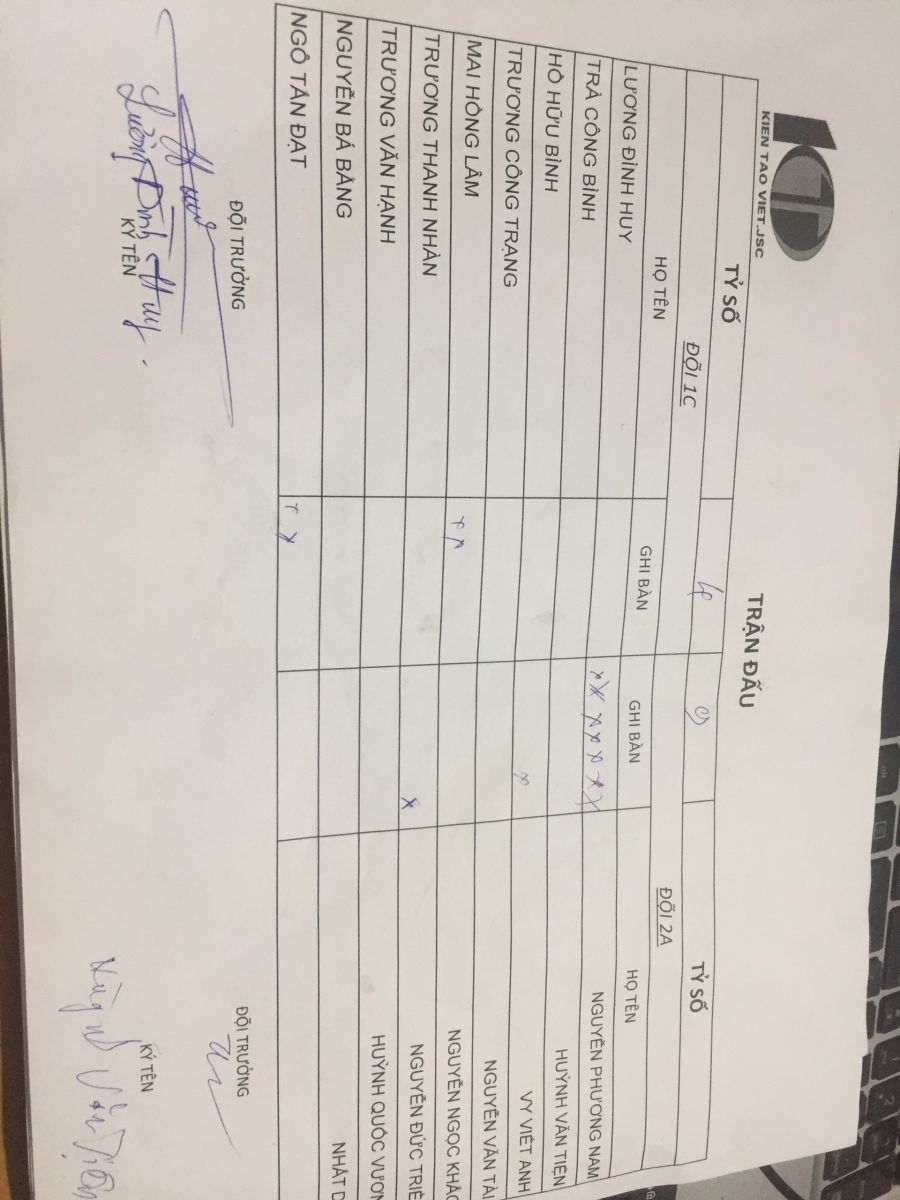 KIEN TAO VIET.JSC
TRẬN ĐẤU
TỶ SỐ 4 9 TỶ SỐ
ĐỘI 1C ĐỘI 2A
HỌ TÊN GHI BÀN GHI BÀN HỌ TÊN
LƯƠNG ĐÌNH HUY x x x x x x x NGUYỄN PHƯƠNG NAM
TRÀ CÔNG BÌNH HUỲNH VĂN TIỆN
HỒ HỮU BÌNH x VY VIẾT ANH
TRƯƠNG CÔNG TRẠNG NGUYỄN VĂN TÀI
MAI HỒNG LÂM x x NGUYỄN NGỌC KHÁ
TRƯƠNG THANH NHÀN x NGUYỄN ĐỨC TRIỀ
TRƯƠNG VĂN HẠNH HUỲNH QUỐC VƯƠN
NGUYỄN BÁ BẰNG NHẤT D
NGÔ TẤN ĐẠT x x
ĐỘI TRƯỞNG ĐỘI TRƯỞNG
KÝ TÊN KÝ TÊN
Lương Đình Huy.